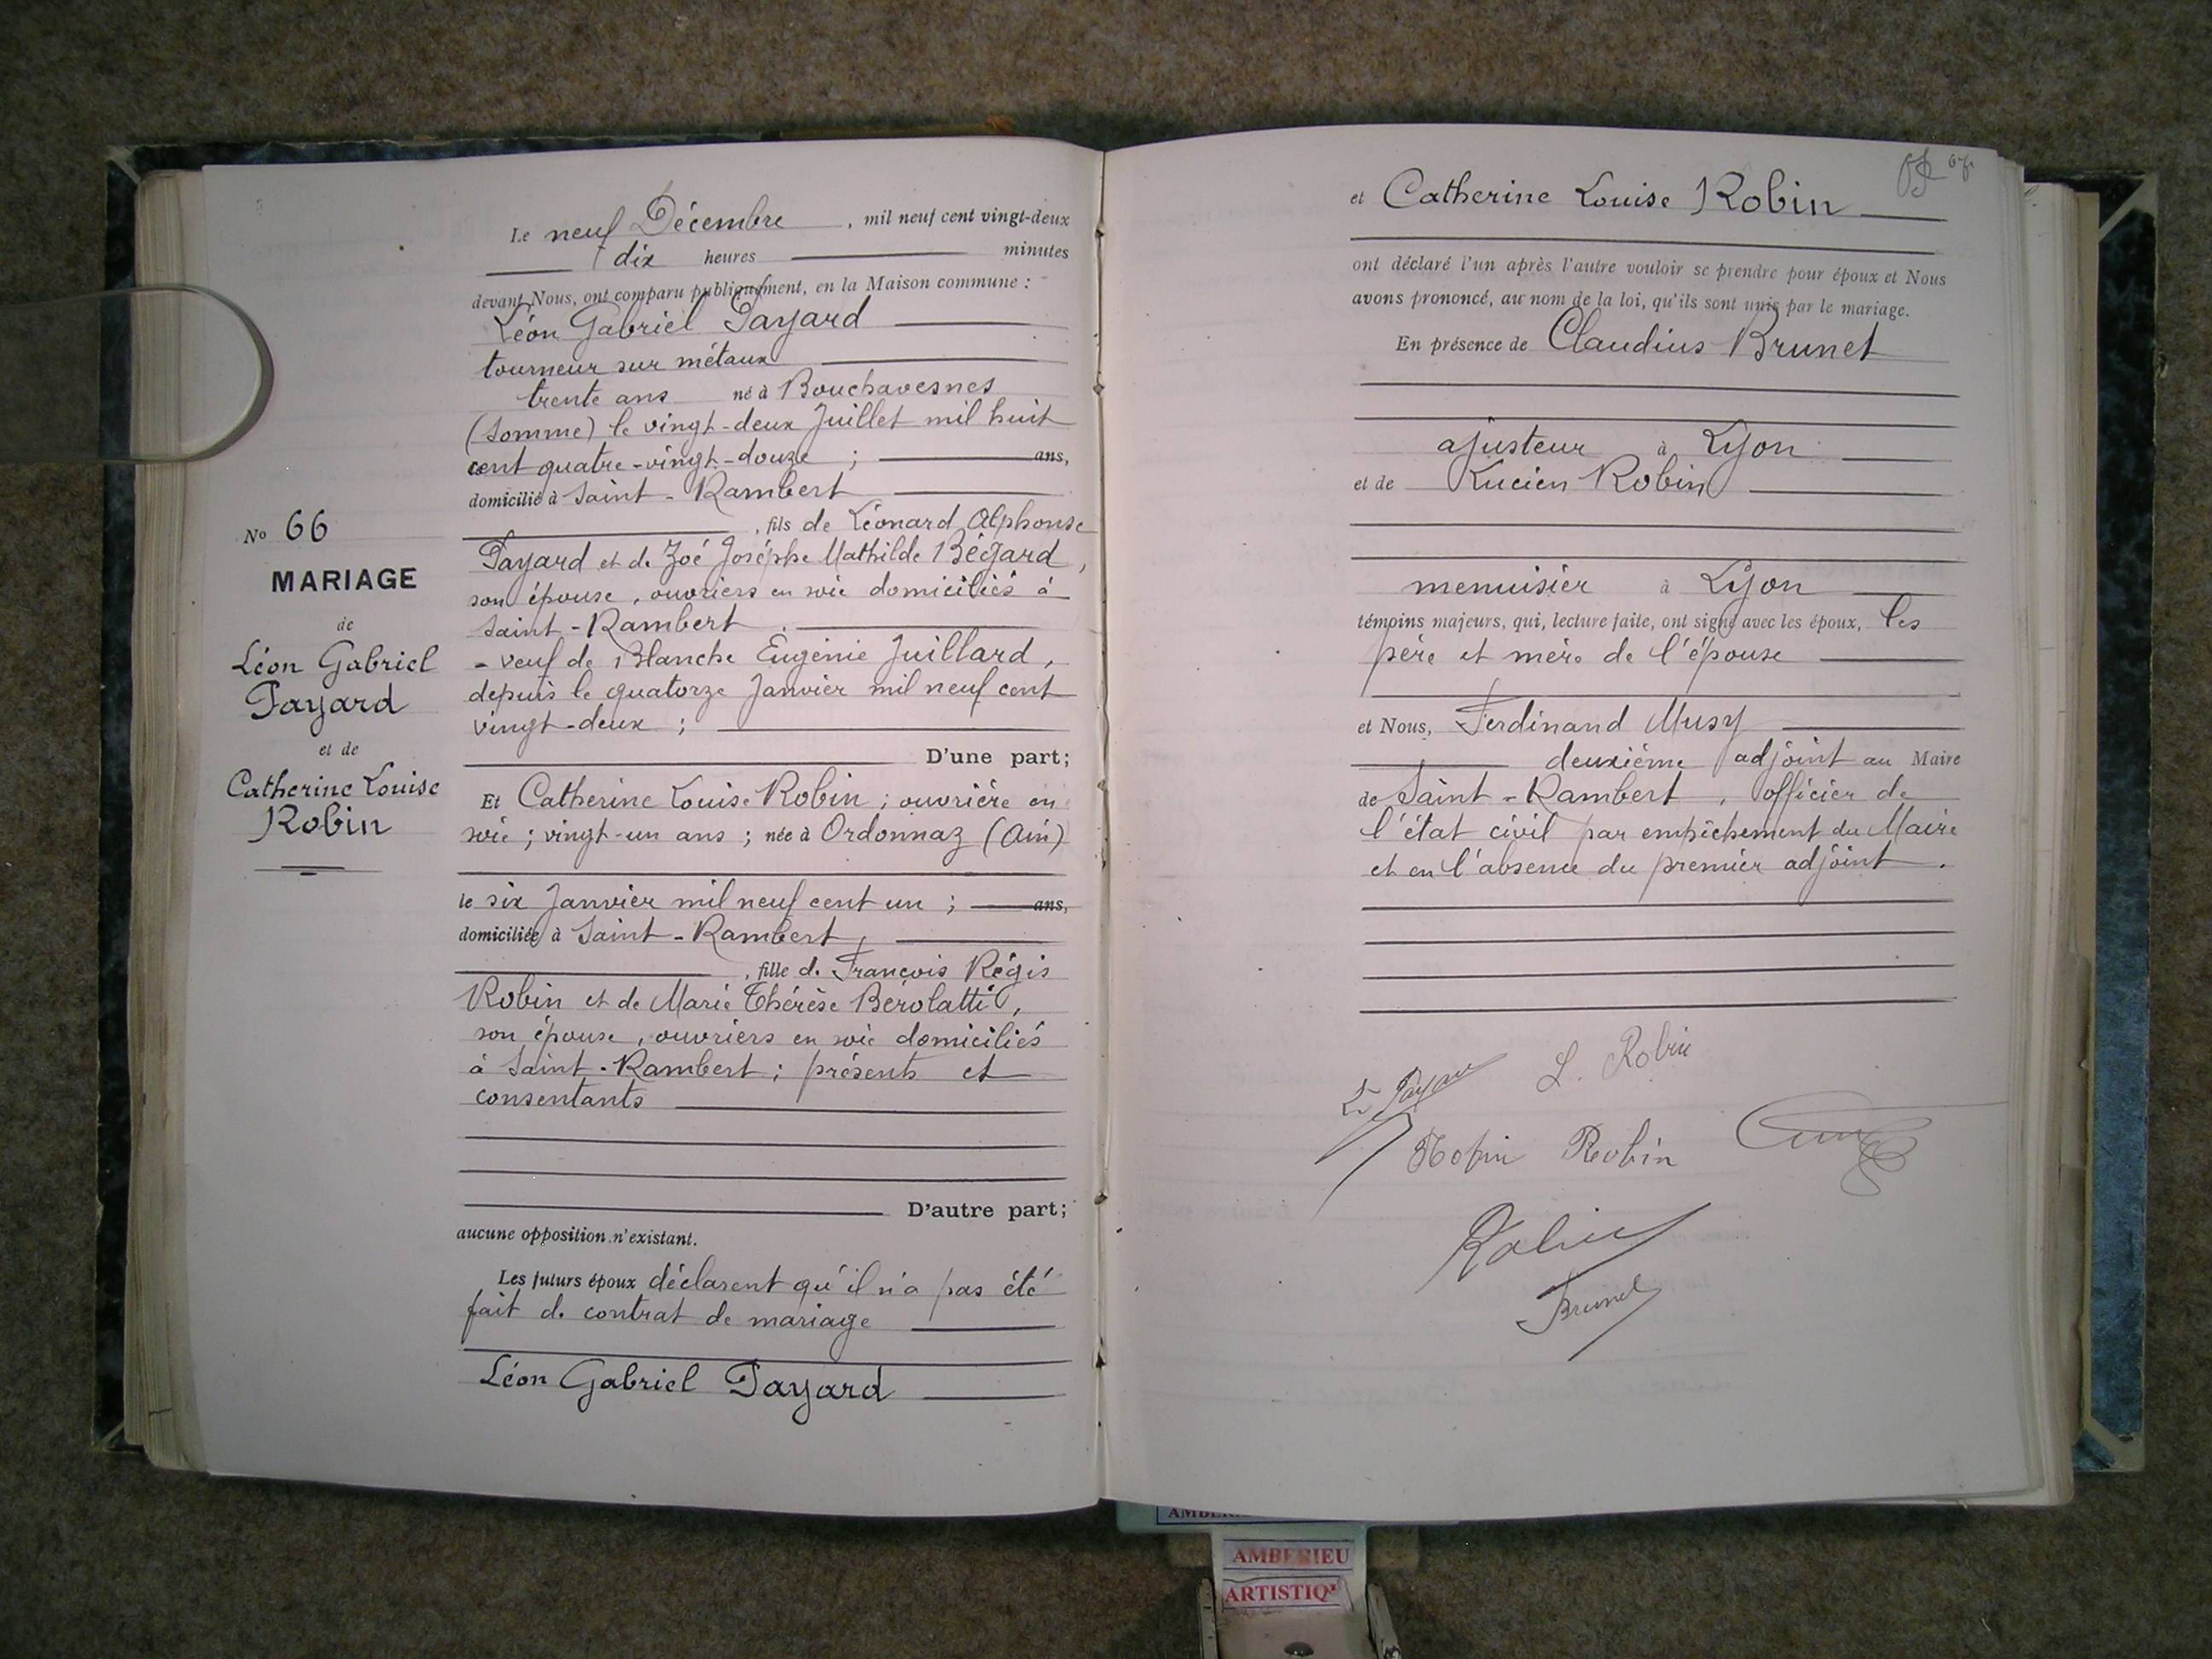 Le neuf Décembre, mil neuf cent vingt-deux
dix heures minutes
devant Nous, ont comparu publiquement, en la Maison commune :
Léon Gabriel Payard
tourneur sur métaux
trente ans né à Bouchavesnes
(Somme) le vingt-deux Juillet mil huit
cent quatre-vingt-douze ; ans,
domicilié à Saint-Rambert
, fils de Léonard Alphonse
Payard et de Zoé Josèphe Mathilde Bégard,
son épouse, ouvriers en soie domiciliés à
Saint-Rambert.
- veuf de Blanche Eugénie Juillard,
depuis le quatorze Janvier mil neuf cent
vingt-deux ;
D'une part;
No 66
MARIAGE
de
Léon Gabriel
Payard
et de
Catherine Louise
Robin
Et Catherine Louise Robin ; ouvrière en
soie ; vingt-un ans ; née à Ordonnaz (Ain)
le six Janvier mil neuf cent un ; ans,
domiciliée à Saint-Rambert,
, fille de François Régis
Robin et de Marie Thérèse Bérolatti,
son épouse, ouvriers en soie domiciliés
à Saint-Rambert ; présents et
consentants
D'autre part;
aucune opposition n'existant.
Les futurs époux déclarent qu'il n'a pas été
fait de contrat de mariage
Léon Gabriel Payard
et Catherine Louise Robin
ont déclaré l'un après l'autre vouloir se prendre pour époux et Nous
avons prononcé, au nom de la loi, qu'ils sont unis par le mariage.
En présence de Claudius Brunet
ajusteur à Lyon
et de Lucien Robin
menuisier à Lyon
témoins majeurs, qui, lecture faite, ont signé avec les époux, les
père et mère de l'épouse
et Nous, Ferdinand Musy
deuxième adjoint au Maire
de Saint-Rambert, officier de
l'état civil par empêchement du Maire
et en l'absence du premier adjoint.
L. Robin
Robin
Robin
Brunet
AMBERIEU
ARTISTIQ